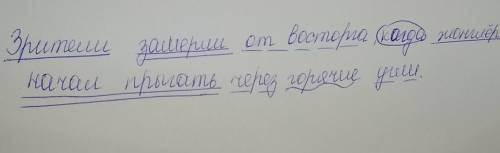 Зрители замерли от восторга, когда жонглёр
начал прыгать через горячие угли.